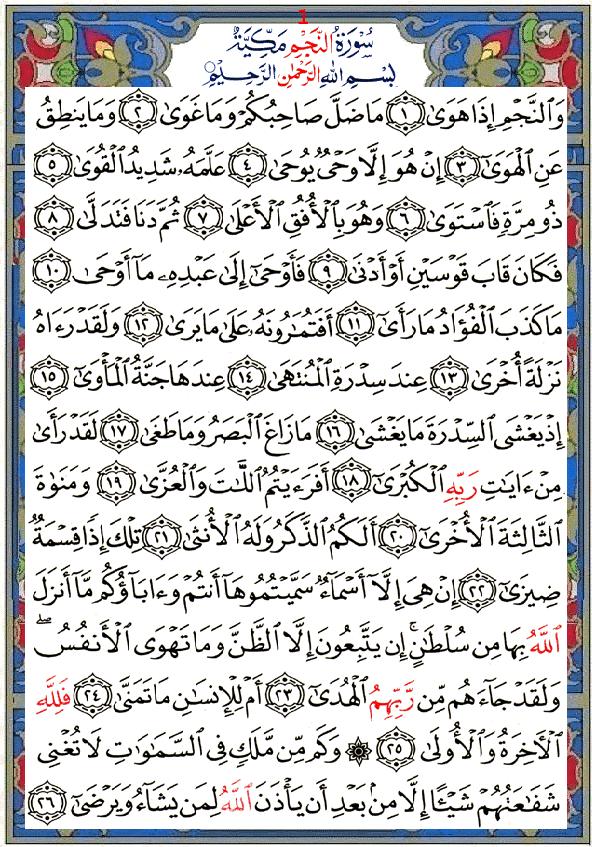 1
سُورَةُ النَّجْمِ مَكِّيَّةٌ
بِسْمِ اللهِ الرَّحْمٰنِ الرَّحِيْمِ
وَٱلنَّجْمِ إِذَا هَوَىٰ ﴿١﴾ مَا ضَلَّ صَاحِبُكُمْ وَمَا غَوَىٰ ﴿٢﴾ وَمَا يَنطِقُ
عَنِ ٱلْهَوَىٰٓ ﴿٣﴾ إِنْ هُوَ إِلَّا وَحْىٌ يُوحَىٰ ﴿٤﴾ عَلَّمَهُۥ شَدِيدُ ٱلْقُوَىٰ ﴿٥﴾
ذُو مِرَّةٍ فَٱسْتَوَىٰ ﴿٦﴾ وَهُوَ بِٱلْأُفُقِ ٱلْأَعْلَىٰ ﴿٧﴾ ثُمَّ دَنَا فَتَدَلَّىٰ ﴿٨﴾
فَكَانَ قَابَ قَوْسَيْنِ أَوْ أَدْنَىٰ ﴿٩﴾ فَأَوْحَىٰٓ إِلَىٰ عَبْدِهِۦ مَآ أَوْحَىٰ ﴿١٠﴾
مَا كَذَبَ ٱلْفُؤَادُ مَا رَأَىٰٓ ﴿١١﴾ أَفَتُمَٰرُونَهُۥ عَلَىٰ مَا يَرَىٰ ﴿١٢﴾ وَلَقَدْ رَءَاهُ
نَزْلَةً أُخْرَىٰ ﴿١٣﴾ عِندَ سِدْرَةِ ٱلْمُنتَهَىٰ ﴿١٤﴾ عِندَهَا جَنَّةُ ٱلْمَأْوَىٰٓ ﴿١٥﴾
إِذْ يَغْشَى ٱلسِّدْرَةَ مَا يَغْشَىٰ ﴿١٦﴾ مَا زَاغَ ٱلْبَصَرُ وَمَا طَغَىٰ ﴿١٧﴾ لَقَدْ رَأَىٰ
مِنْ ءَايَٰتِ رَبِّهِ ٱلْكُبْرَىٰٓ ﴿١٨﴾ أَفَرَءَيْتُمُ ٱللَّٰتَ وَٱلْعُزَّىٰ ﴿١٩﴾ وَمَنَوٰةَ
ٱلثَّالِثَةَ ٱلْأُخْرَىٰٓ ﴿٢٠﴾ أَلَكُمُ ٱلذَّكَرُ وَلَهُ ٱلْأُنثَىٰ ﴿٢١﴾ تِلْكَ إِذًا قِسْمَةٌ
ضِيزَىٰٓ ﴿٢٢﴾ إِنْ هِىَ إِلَّآ أَسْمَآءٌ سَمَّيْتُمُوهَآ أَنتُمْ وَءَابَآؤُكُم مَّآ أَنزَلَ
ٱللَّهُ بِهَا مِن سُلْطَٰنٍ ۚ إِن يَتَّبِعُونَ إِلَّا ٱلظَّنَّ وَمَا تَهْوَى ٱلْأَنفُسُ ۖ
وَلَقَدْ جَآءَهُم مِّن رَّبِّهِمُ ٱلْهُدَىٰٓ ﴿٢٣﴾ أَمْ لِلْإِنسَٰنِ مَا تَمَنَّىٰ ﴿٢٤﴾ فَلِلَّهِ
ٱلْءَاخِرَةُ وَٱلْأُولَىٰ ﴿٢٥﴾ ۞ وَكَم مِّن مَّلَكٍ فِى ٱلسَّمَٰوَٰتِ لَا تُغْنِى
شَفَٰعَتُهُمْ شَيْـًٔا إِلَّا مِنۢ بَعْدِ أَن يَأْذَنَ ٱللَّهُ لِمَن يَشَآءُ وَيَرْضَىٰٓ ﴿٢٦﴾